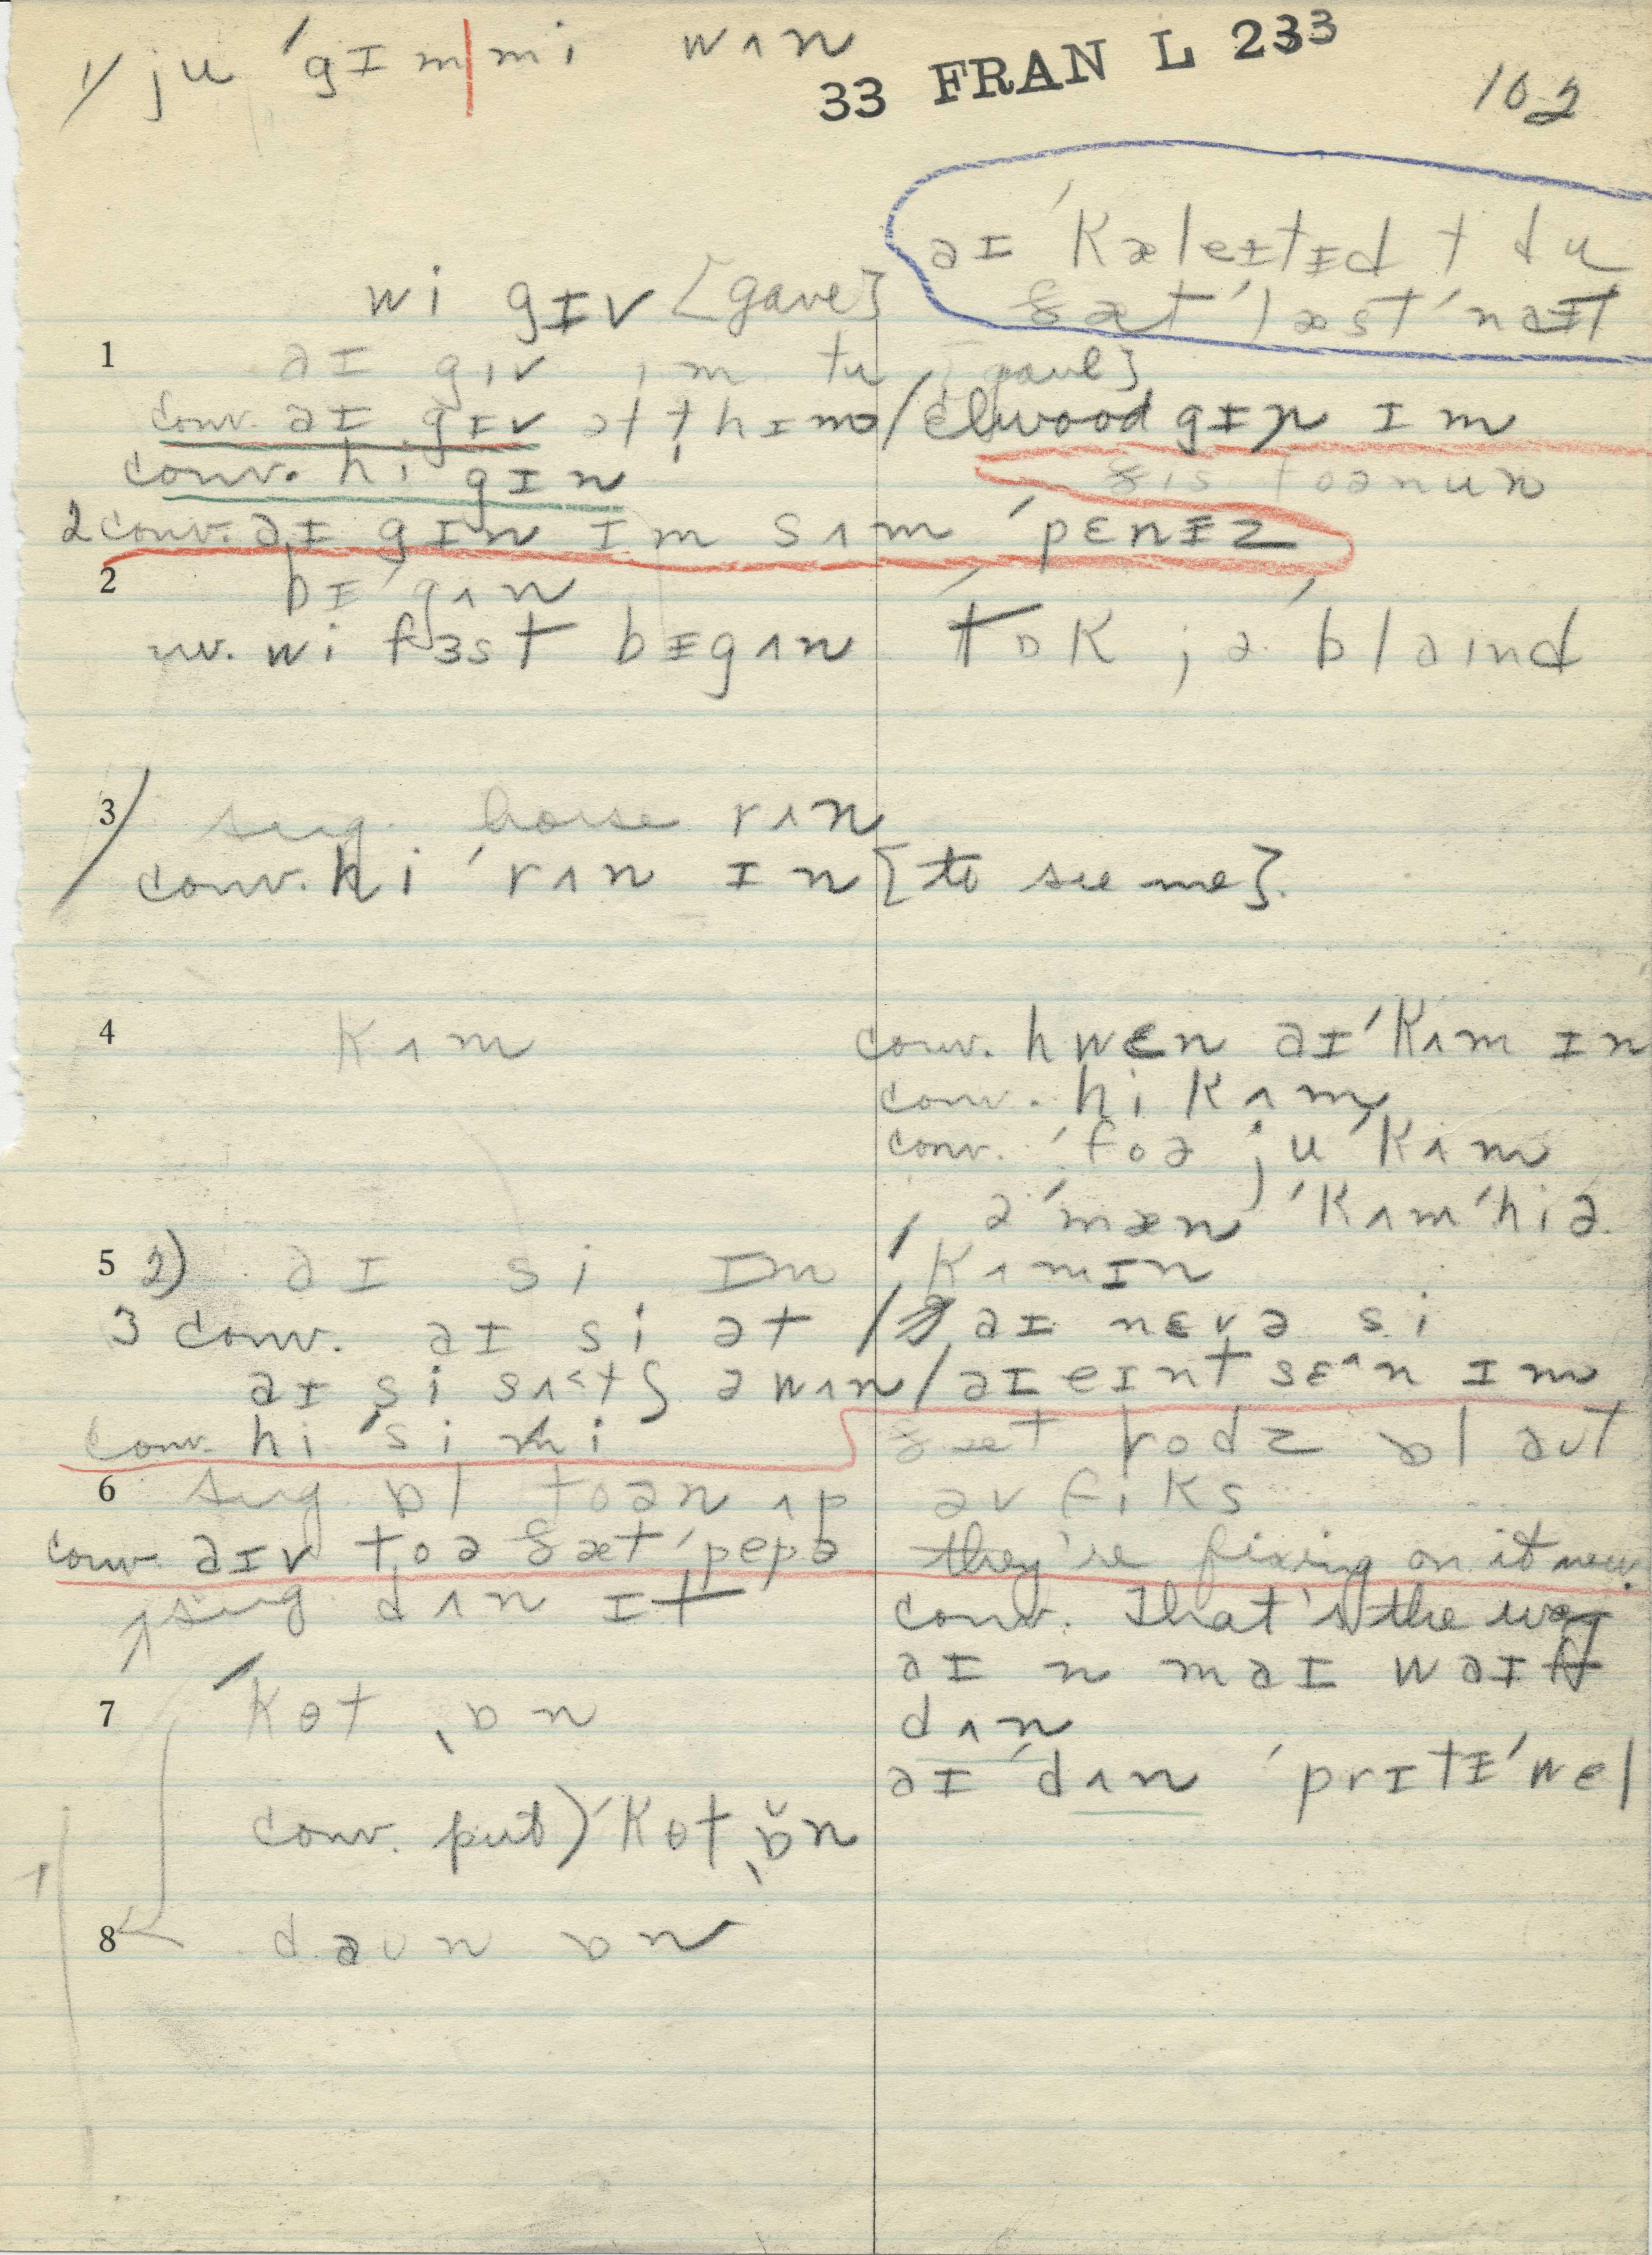 1/ ju ˈgɪm|mi wʌn
33 FRAN L 233
102
aɪ ˈkæleɪtɪd t du
ðæt ˈlæst ˈnaɪt
wi gɪv [gave]
1 aɪ gɪv ɪm tu [gave]
conv. aɪ gɪv ət t hɪm / Elwood gɪn ɪm
conv. hi gɪn
ðɪs
2 conv. aɪ gɪn ɪm sʌm ˈpɛnɪz
2 bɪˈgʌn
wi fɜst bɪgʌn
tɒk jə ˈblaɪnd
3/ sug. horse rʌn
conv. hi ˈrʌn ɪn [to see me].
4 kʌm
conv. hwɛn aɪ ˈkʌm ɪn
conv. hi kʌm
conv. ˈfoə ju ˈkʌm
ə ˈmæn ˈkʌm ˈhiə
5 2) aɪ si ɪm
kʌmɪn
3 conv. aɪ si ət / aɪ nɛvə si
aɪ si sʌtʃ ə wʌn / aɪ eɪnt sɛʌn ɪm
conv. hi ˈsi mi
ðæt rodz ɒl aʊt
6 sug. ɒl toən ʌp
əv fiks
conv. aɪv toə ðæt ˈpepə
they're fixing on it now.
sug dʌn ɪt
conv. That's the way
aɪ n maɪ waɪf
7 ˈkɵt ˌɒn
dʌn
aɪ ˈdʌn ˈprɪtɪ ˈwel
conv. put) ˈkɵt ˌɒ̆n
8 daʊn ɒn